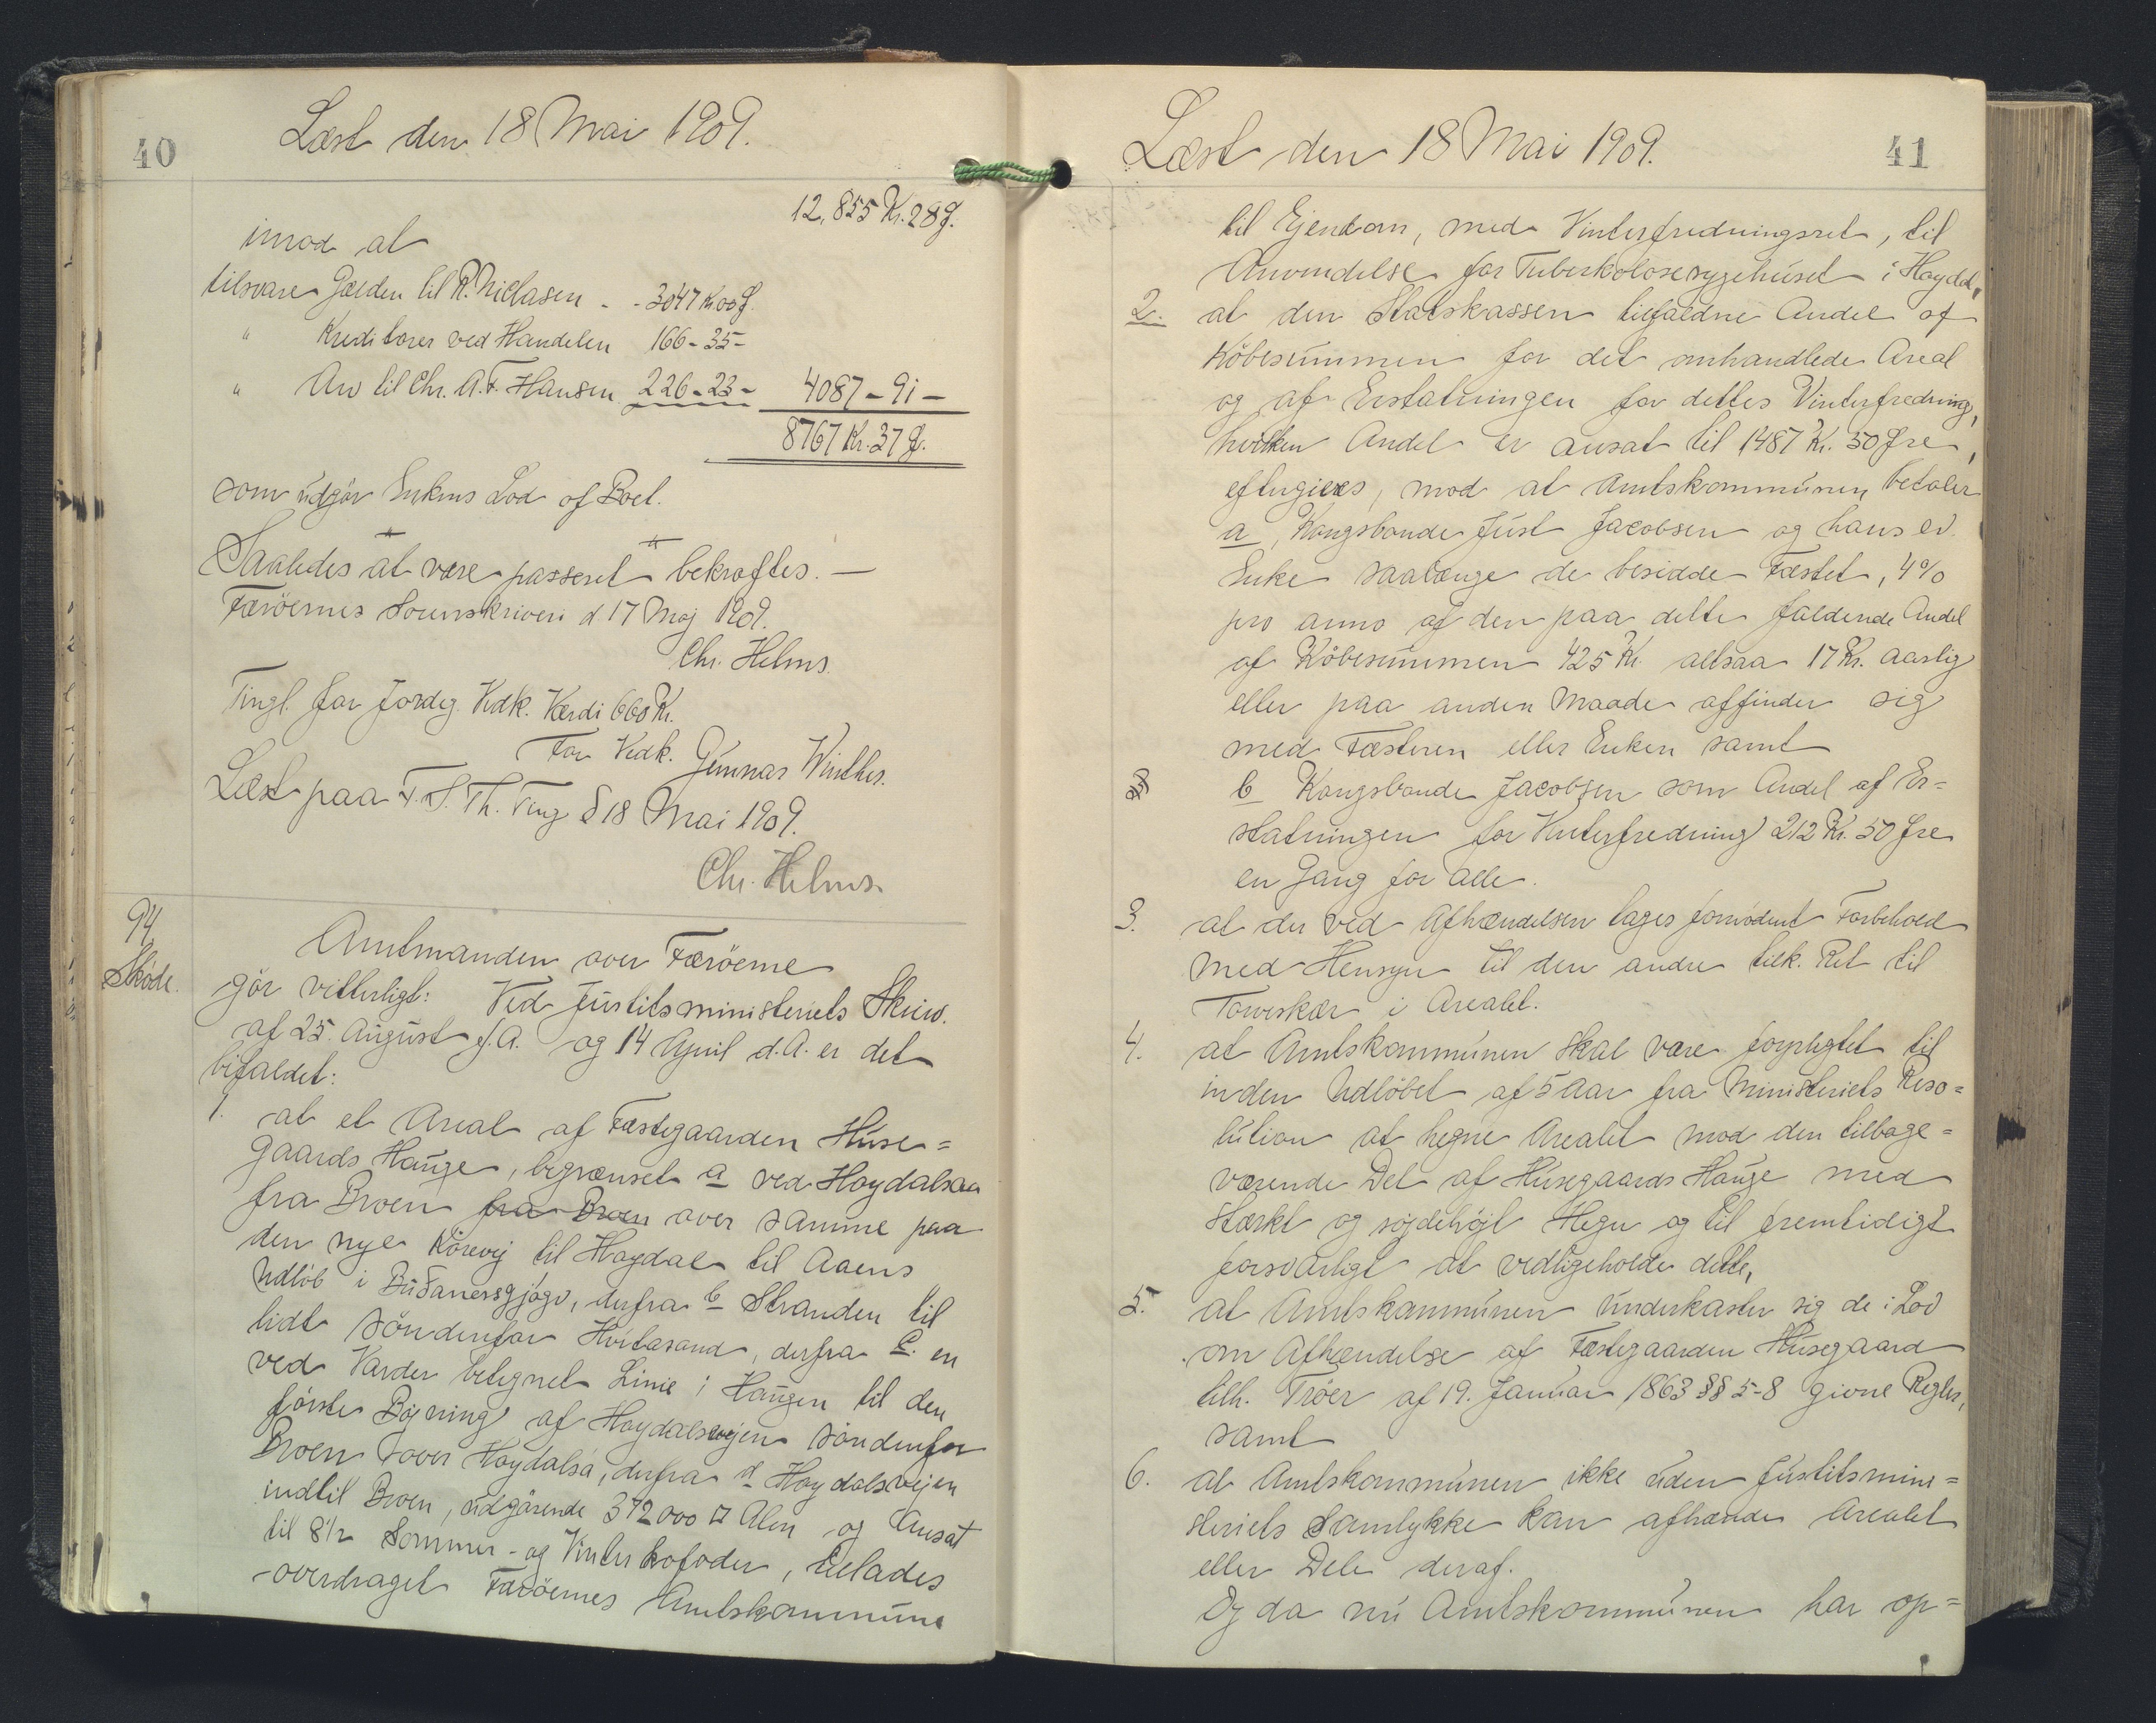 40
Læst den 18 Mai 1909.
12,855 Kr. 28 Ø.
imod at
tilsvare Gælden til R. Niclasen - - 3047 Kr 00 Ø.
" Kreditorer ved Handelen 166 - 35 -
" Arv til Chr. A. F. Hansen 226 - 23 - 4087 - 91 -
8767 Kr. 37 Ø.
som udgör Enkens Lod af Boet.
Saaledes at være passeret bekræftes. —
Færöernes Sorenskriveri d. 17 Maj 1909.
Chr. Helms.
Tingl. for Jordeg. Vedk. Værdi 660 Kr.
For Vedk. Gunnar Winther.
Læst paa F. S. Th. Ting d 18 Mai 1909.
Chr. Helms.
94
Sköde.
Amtmanden over Færöerne
gör vitterligt: Ved Justitsministeriets Skriv.
af 25. August f. A. og 14 April d. A. er det
bifaldet:
1. at et Areal af Fæstegaarden Huse=
gaards Hauge, begrænset a ved Hoydalsaa
fra Broen fra Broen over samme paa
den nye Körevej til Hoydal til Aaens
Udlöb i Buðanessgjógv, derfra b Stranden til
lidt Söndenfor Hvitasand, derfra c. en
ved Varder betegnet Linie i Haugen til den
förste Böjning af Hoydalsvejen Söndenfor
Broen over Hoydalsá, derfra d Hoydalsvejen
indtil Broen, udgörende 372000 □ Alen og Ansat
til 8½ Sommer- og Vinterkofoder, tillades
overdraget Færöernes Amtskommune
41
Læst den 18 Mai 1909.
til Ejendom, med Vinterfredningsret, til
Anvendelse for Tuberkolosesygehuset i Hoydal,
2. at den Statskassen tilfaldne Andel af
Köbesummen for det omhandlede Areal
og af Erstatningen for dettes Vinterfredning,
hvilken Andel er ansat til 1487 Kr. 50 Øre,
eftergives, mod at Amtskommunen betaler
a, Kongsbonde Just Jacobsen og hans ev.
Enke saalænge de besidde Fæstet, 4%
pro anno af den paa dette faldende Andel
af Köbesummen 425 Kr. altsaa 17 Kr. aarlig
eller paa anden Maade affinder sig
med Fæsteren eller Enken samt
b Kongsbonde Jacobsen som Andel af Er=
statningen for Vinterfredning 212 Kr. 50 Øre
en Gang for alle.
3. at der ved Afhændelsen tages fornödent Forbehold
med Hensyn til den andre tilk. Ret til
Torveskær i Arealet.
4. at Amtskommunen skal være forpligtet til
inden Udlöbet af 5 Aar fra Ministeriets Reso=
lution at hegne Arealet mod den tilbage=
værende Del af Husegaards Hauge med
stærkt og söjdehöjt Hegn og til fremtidigt
forsvarligt at vedligeholde dette,
5. at Amtskommunen underkaster sig de i Lov
om Afhændelse af Fæstegaarden Husegaard
tilh. Tröer af 19. Januar 1863 §§ 5-8 givne Regler,
samt
6. at Amtskommunen ikke uden Justitsmini=
steriets Samtykke kan afhænde Arealet
eller Dele deraf.
Og da nu Amtskommunen har op=